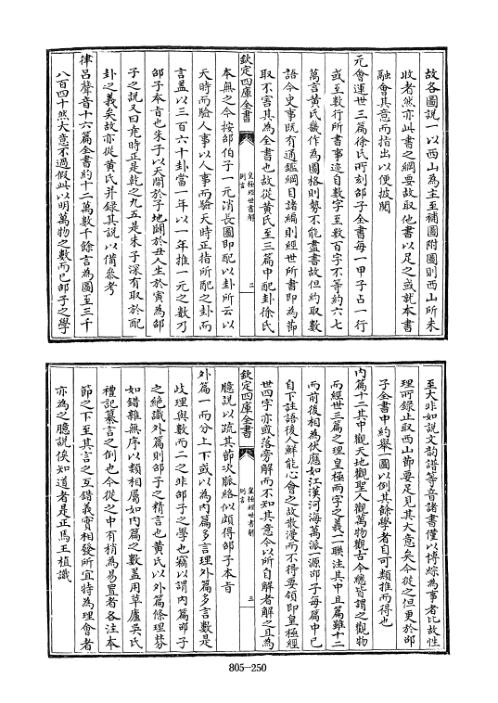 故各圖說一以西山為主至補圖附圖則西山所未
收者然亦此書之綱要故取他書以足之或就本書
融會其意而指出以便披閱
元會運世三篇徐氏所刻邵子全書每一甲子占一行
或至數行所書事迹自數字至數百字不等約六七
萬言黃氏畿作為圖格則勢不能盡書故但約取數
語今史事既有通鑑綱目諸編則經世所書即為節
取不害其為全書也故從黃氏至三篇中配卦徐氏
欽定四庫全書
皇極經世書解
例言
二
本無之今按邵伯子一元消長圖即配以卦所云以
天時而驗人事以人事而驗天時正指所配之卦而
言蓋以三百六十卦當一年以一年推一元之數乃
邵子本旨也朱子以天開於子地闢於丑人生於寅為邵
子之說又曰堯時正是乾之九五是朱子深有取於配
卦之義矣故亦從黃氏并録其說以備參考
律呂聲音十六篇全書約十二萬數千餘言為圖至三千
八百四十然大意不過假此以明萬物之數而已邵子之學
至大非如說文韵譜等音諸書僅以博綜為事者比故性
理所錄止取西山節要足見其大意矣今從之但更於邵
子全書中約舉一圖以例其餘學者自可類推而得也
内篇十二其中觀天地觀聖人觀萬物觀古今總皆謂之觀物
而經世三篇之理皇極兩字之義一一聯注其中且篇雖十二
而前後相為伏應如江漢河海萬派一源邵子每篇中已
自下註語後人鮮能心會之故散漫而不得要領即皇極經
世四字亦或落旁解而不知其意今以所自解者解之且為
欽定四庫全書
皇極經世書解
例言
三
臆說以疏其節次脈絡似頗得邵子本旨
外篇一而分上下或以為内篇多言理外篇多言數是
歧理與數而二之非邵子之學也竊以謂内篇邵子
之絶識外篇則邵子之精言也黃氏以外篇條理芬
如錯雜無序以類相屬如内篇之數蓋用草廬吳氏
禮記纂言之例也今從之中有稍為易置者各注本
節之下至其言之互錯義實相發所宜特為理會者
亦為之臆說俟知道者是正焉王植識
805-250